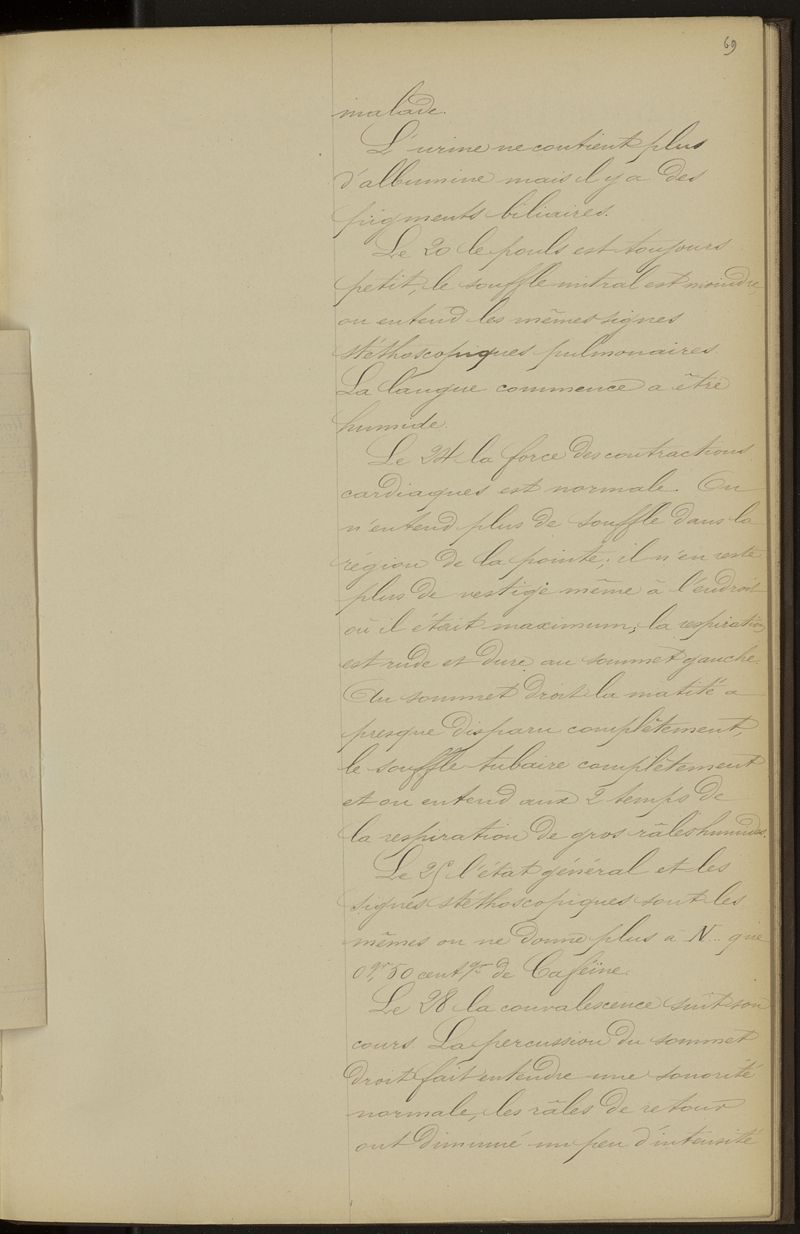 69
malade.
L'urine ne contient plus
d'albumine mais il y a des
pigments biliaires.
Le 20 le pouls est toujours
petit, le souffle mitral est moindre,
on entend les mêmes signes
stéthoscopiques pulmonaires.
La langue commence a être
humide.
Le 24 la force des contractions
cardiaques est normale. On
n'entend plus de souffle dans la
région de la pointe; il n'en reste
plus de vestige même à l'endroit
où il était maximum; la respiration
est rude et dure au sommet gauche.
Au sommet droit la matité a
presque disparu complêtement,
le souffle tubaire complêtement
et on entend aux 2 temps de
la respiration de gros râles humides.
Le 25 l'état général et les
signes stéthoscopiques sont les
mêmes on ne donne plus à N... que
0gr,50 centgr de Caféine.
Le 28 la convalescence suit son
cours. La percussion du sommet
droit fait entendre une sonorité
normale, les râles de retour
ont diminué un peu d'intensité